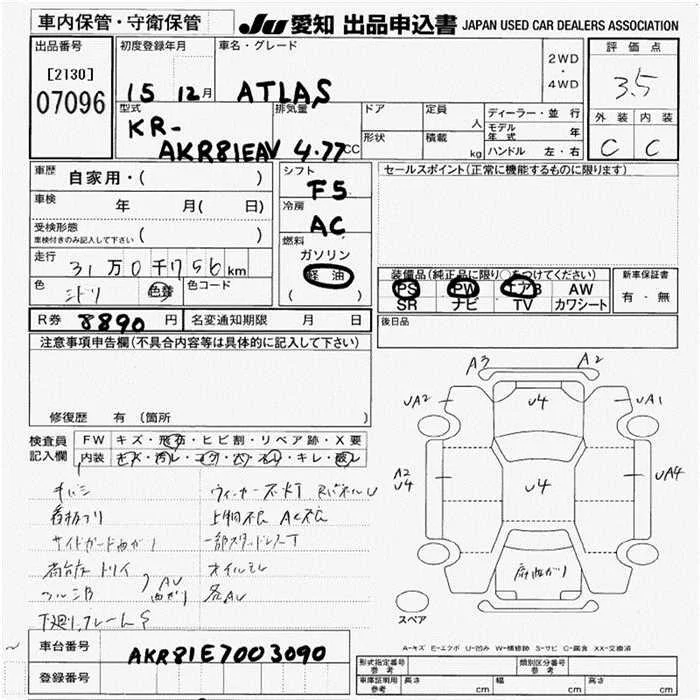 車内保管・守衛保管
JU 愛知 出品申込書 JAPAN USED CAR DEALERS ASSOCIATION
出品番号
[2130]
07096
初度登録年月
15 12月
車名・グレード
ATLAS
2WD
・
4WD
評価点
3.5
外装 内装
C C
型式
KR-
AKR81EAV
排気量
4.77cc
ドア
形状
定員 人
積載 kg
ディーラー・並行
モデル年式 年
ハンドル 左・右
車歴 自家用・( )
車検 年 月( 日)
受検形態
車検付きのみ記入して下さい ( )
走行 31万0千756km
色 ミドリ 色替 色コード
シフト
F5
冷房
AC
燃料
ガソリン
軽油
( )
セールスポイント(正常に機能するものに限ります)
装備品(純正品に限り○をつけてください)
PS PW エアB AW
SR ナビ TV カワシート
新車保証書
有・無
R券 8890円 名変通知期限 月 日
後日品
注意事項申告欄(不具合内容等は具体的に記入して下さい)
修復歴 有(箇所
検査員
記入欄
FW キズ・飛石・ヒビ割・リペア跡・X要
内装 キズ・汚レ・コゲ・穴・スレ・キレ・破レ
ウィンカー不灯
サイドガード曲がり
オイルモレ
曲がり 各AU
下廻リフレームS
A3 A2
UA2 U4 UA1
A2
U4
U4
UA4
扉曲がり
スペア
A-キズ E-エクボ U-凹み W-補修跡 S-サビ C-腐食 XX-交換済
車台番号 AKR81E7003090
登録番号
形式指定番号
参考
類別区分番号
参考
車庫証明用
参考
長さ cm 幅 cm 高さ cm